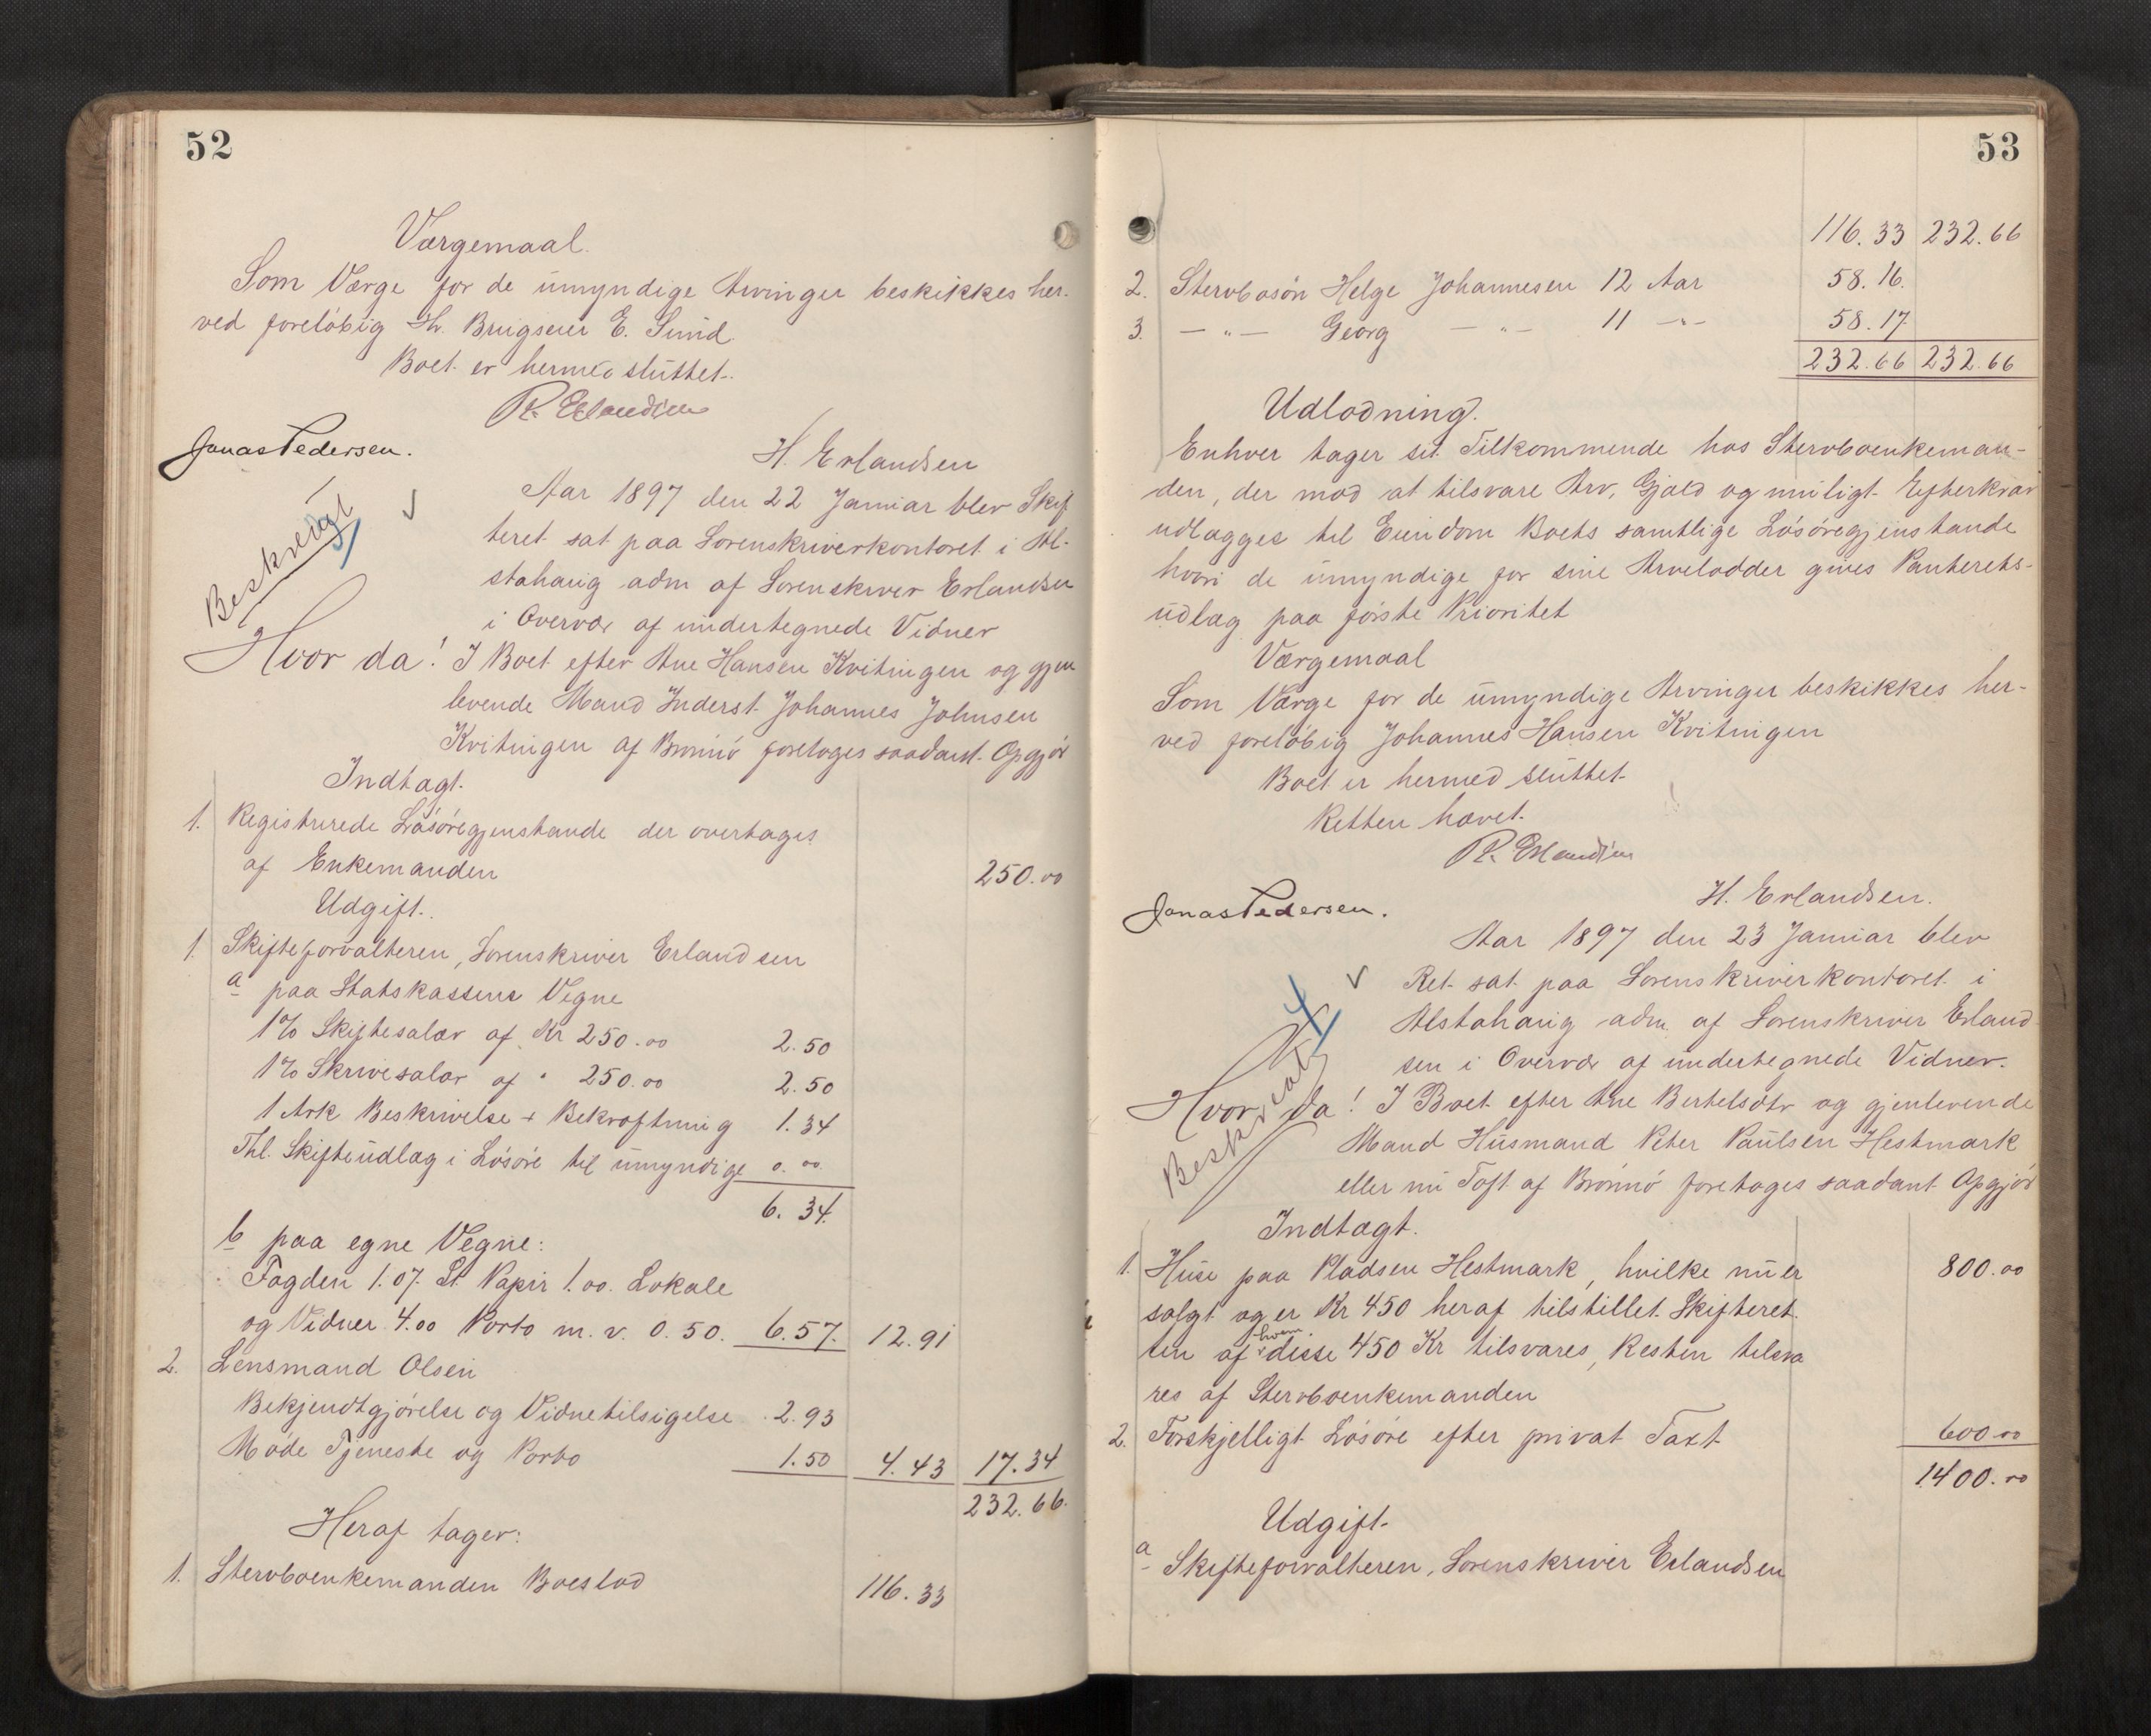 52
Værgemaal.
Som Værge for de umyndige Arvinger beskikkes her-
ved foreløbig Hr. Brugseier E. Sund.
Boet er hermed sluttet.
R. Erlandsen
Jonas Pedersen.
H. Erlandsen
Aar 1897 den 22 Januar blev Skif
teret sat paa Sorenskriverkontoret i Al-
stahaug adm af Sorenskriver Erlandsen
i Overvær af undertegnede Vidner
Beskrevet
3/
Hvor da! I Boet efter Ane Hansen Kvitingen og gjen
levende Mand Inderst Johannes Johnsen
Kvitingen af Brønnø foretoges saadant Opgjør
Indtægt.
1. Registrerede Løsøregjenstande der overtages
af Enkemanden 250.00
Udgift.
1. Skifteforvalteren, Sorenskriver Erlandsen
a paa Statskassens Vegne
1% Skiftesalær af Kr 250.00 2.50
1% Skrivesalær af " 250.00 2.50
1 Ark Beskrivelse + Bekræftning 1.34
Thl. Skifteudlæg i Løsøre til umyndige 0.00
6.34.
b paa egne Vegne:
Fogden 1.07. St. Papir 1.00. Lokale
og Vidner 4.00 Porto m. v. 0.50. 6.57. 12.91
2. Lensmand Olsen
Bekjendtgjørelse og Vidnetilsigelse 2.93
Møde Tjeneste og Porto 1.50 4.43 17.34
232.66.
Heraf tager:
1. Stervboenkemanden Boeslod 116.33
53
116.33 232.66
2. Stervbosøn Helge Johannesen 12 Aar 58.16.
3. — " — Georg — " — 11 — " — 58.17
232.66 232.66
Udlodning.
Enhver tager sit Tilkommende hos Stervboenkeman-
den, der mod at tilsvare Arv, Gjæld og muligt Efterkrav
udlægges til Eiendom Boets samtlige Løsøregjenstande
hvori de umyndige for sine Arvelodder gives Panterets-
udlæg paa første Prioritet
Værgemaal
Som Værge for de umyndige Arvinger beskikkes her-
ved foreløbig Johannes Hansen Kvitingen
Boet er hermed sluttet
Retten hævet.
R. Erlandsen
Jonas Pedersen.
H. Erlandsen.
Aar 1897 den 23 Januar blev
Ret sat paa Sorenskriverkontoret i
Alstahaug adm. af Sorenskriver Erland
sen i Overvær af undertegnede Vidner.
Beskrevet
4/
Hvor da! I Boet efter Ane Bertelsdtr og gjenlevende
Mand Husmand Peter Paulsen Hestmark
eller nu Toft af Brønnø foretoges saadant Opgjør
Indtægt.
1. Huse paa Pladsen Hestmark, hvilke nu er 800.00
solgt og er Kr 450 heraf tilstillet Skifteret
ten af hvem disse 450 Kr tilsvares, Resten tilsva
res af Stervboenkemanden
2. Forskjelligt Løsøre efter privat Taxt 600.00
1400.00
Udgift.
a Skifteforvalteren, Sorenskriver Erlandsen